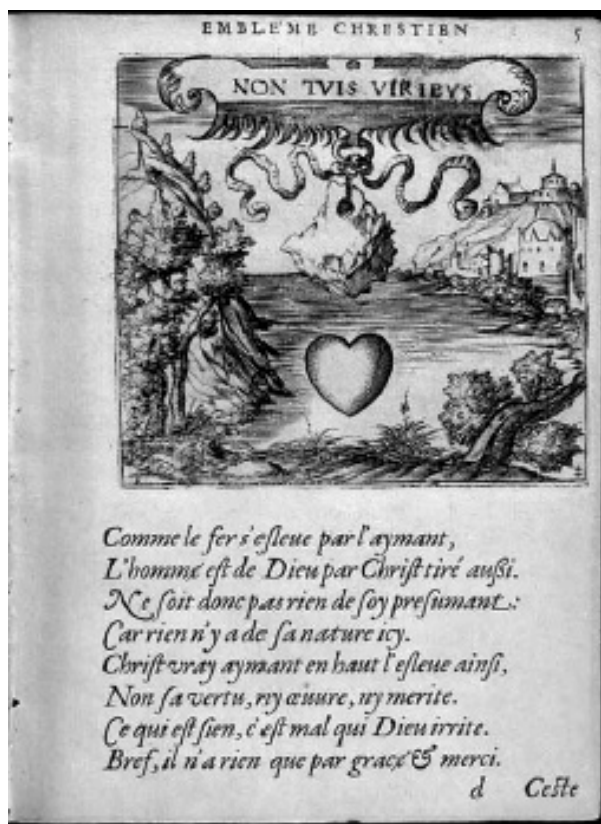 EMBLEME CHRESTIEN 5
NON TVIS VIRIBVS
Comme le fer s'esleue par l'aymant,
L'homme est de Dieu par Christ tiré aussi.
Ne soit donc pas rien de soy presumant:
Car rien n'y a de sa nature icy.
Christ vray aymant en haut l'esleue ainsi,
Non sa vertu, ny œuure, ny merite.
Ce qui est sien, c'est mal qui Dieu irrite.
Bref, il n'a rien que par grace & merci.
d Ceste